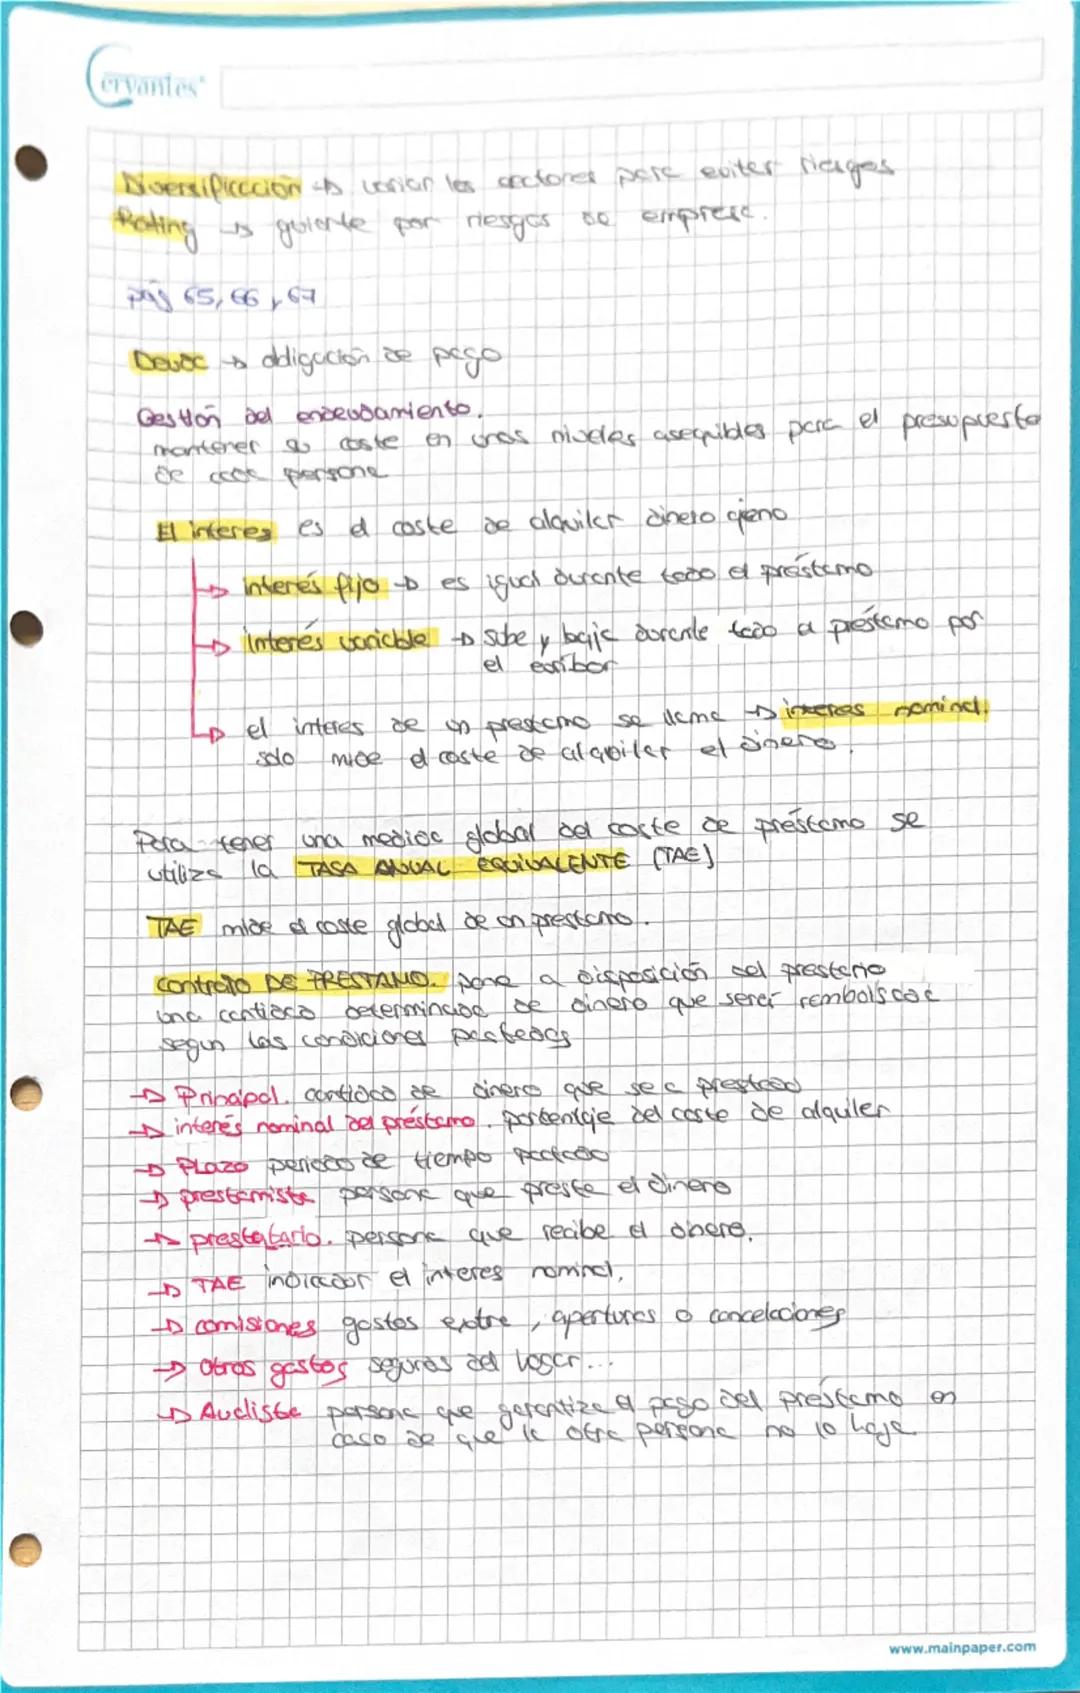 Cervantes
Diversificación → variar los sectores para evitar riesgos
Rating → guiarte por riesgos de empresa.
pág 65, 66 y 67
Deuda → obligación de pago
Gestión del endeudamiento.
mantener su coste en unos niveles asequibles para el presupuesto
de cada persona
El interes es el coste de alquilar dinero ajeno
→ interés fijo → es igual durante todo el préstamo
→ interés variable → sube y baja durante todo el préstamo por
el euribor
→ el interes de un prestamo se llama → interes nominal,
solo mide el coste de alquilar el dinero.
Para tener una medida global del coste de préstamo se
utiliza la TASA ANUAL EQUIVALENTE (TAE)
TAE mide el coste global de un prestamo.
contrato DE PRESTAMO. pone a disposición del prestario
una cantidad determinada de dinero que será rembolsada
segun las condiciones pactadas
→ Principal. cantidad de dinero que se a prestado
→ interés nominal del préstamo. porcentaje del coste de alquiler
→ Plazo periodo de tiempo pactado
→ prestamista persona que presta el dinero
→ prestatario. persona que recibe el dinero.
→ TAE indicador el interes nominal.
→ comisiones gastos extra, aperturas o cancelaciones
→ Otros gastos seguros del hogar...
→ Avalista persona que garantiza el pago del préstamo en
caso de que la otra persona no lo haga
www.mainpaper.com